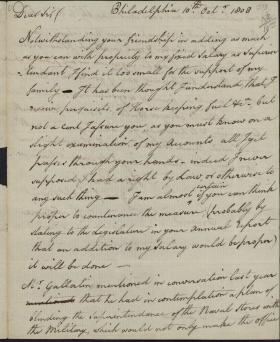 Dear Sir Philadelphia 10th Oct. 1808
Notwithstanding your friendship in adding as much
as you can with propriety to my fixed salary as Superin
tendant I find it too small for the support of my
family — It has been thought, I understand, that I
perquisits, of Horse keeping fuel &c. but
not a Cent I assure you, as you must know on a
slight examination of my Accounts all I get
passes through your hands — indeed I never
supposed I had a right by law, or otherwise to
any such thing — I am almost certain if you can think
proper to countenance the measure (probably by
stating to the legislature in your annual report
that an addition to my Salary would be proper)
it will be done —
Mr. Gallatin mentioned in conversation last year
that he had in contemplation a plan of
blending the Superintendance of the Naval Stores with
the Military, which would not only make the office